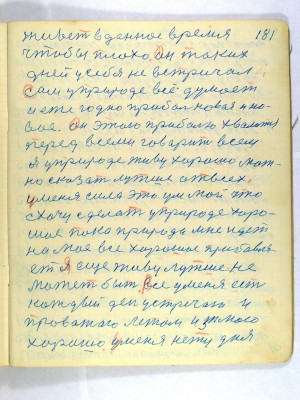 181
живет в данное время
чтобы плохо он таких
дней у себя не встричал
Сам у природе всё думает
и ежегодно прибал новая и но-
вое. Он этого прибалю хвалит
перед всеми говарит всем
я у природе живу хорошо мож-
но сказат лутше от всех
у меня сила это ум мой что
схочу сделат у природе хоро-
шое пока природа мне идет
на моё всё хорошое прибавля-
ет я еще живу лутше не
может быт Все у меня ест
каждый ден устричаю и
проважаю летом и зимою
хорошо у меня нету дня